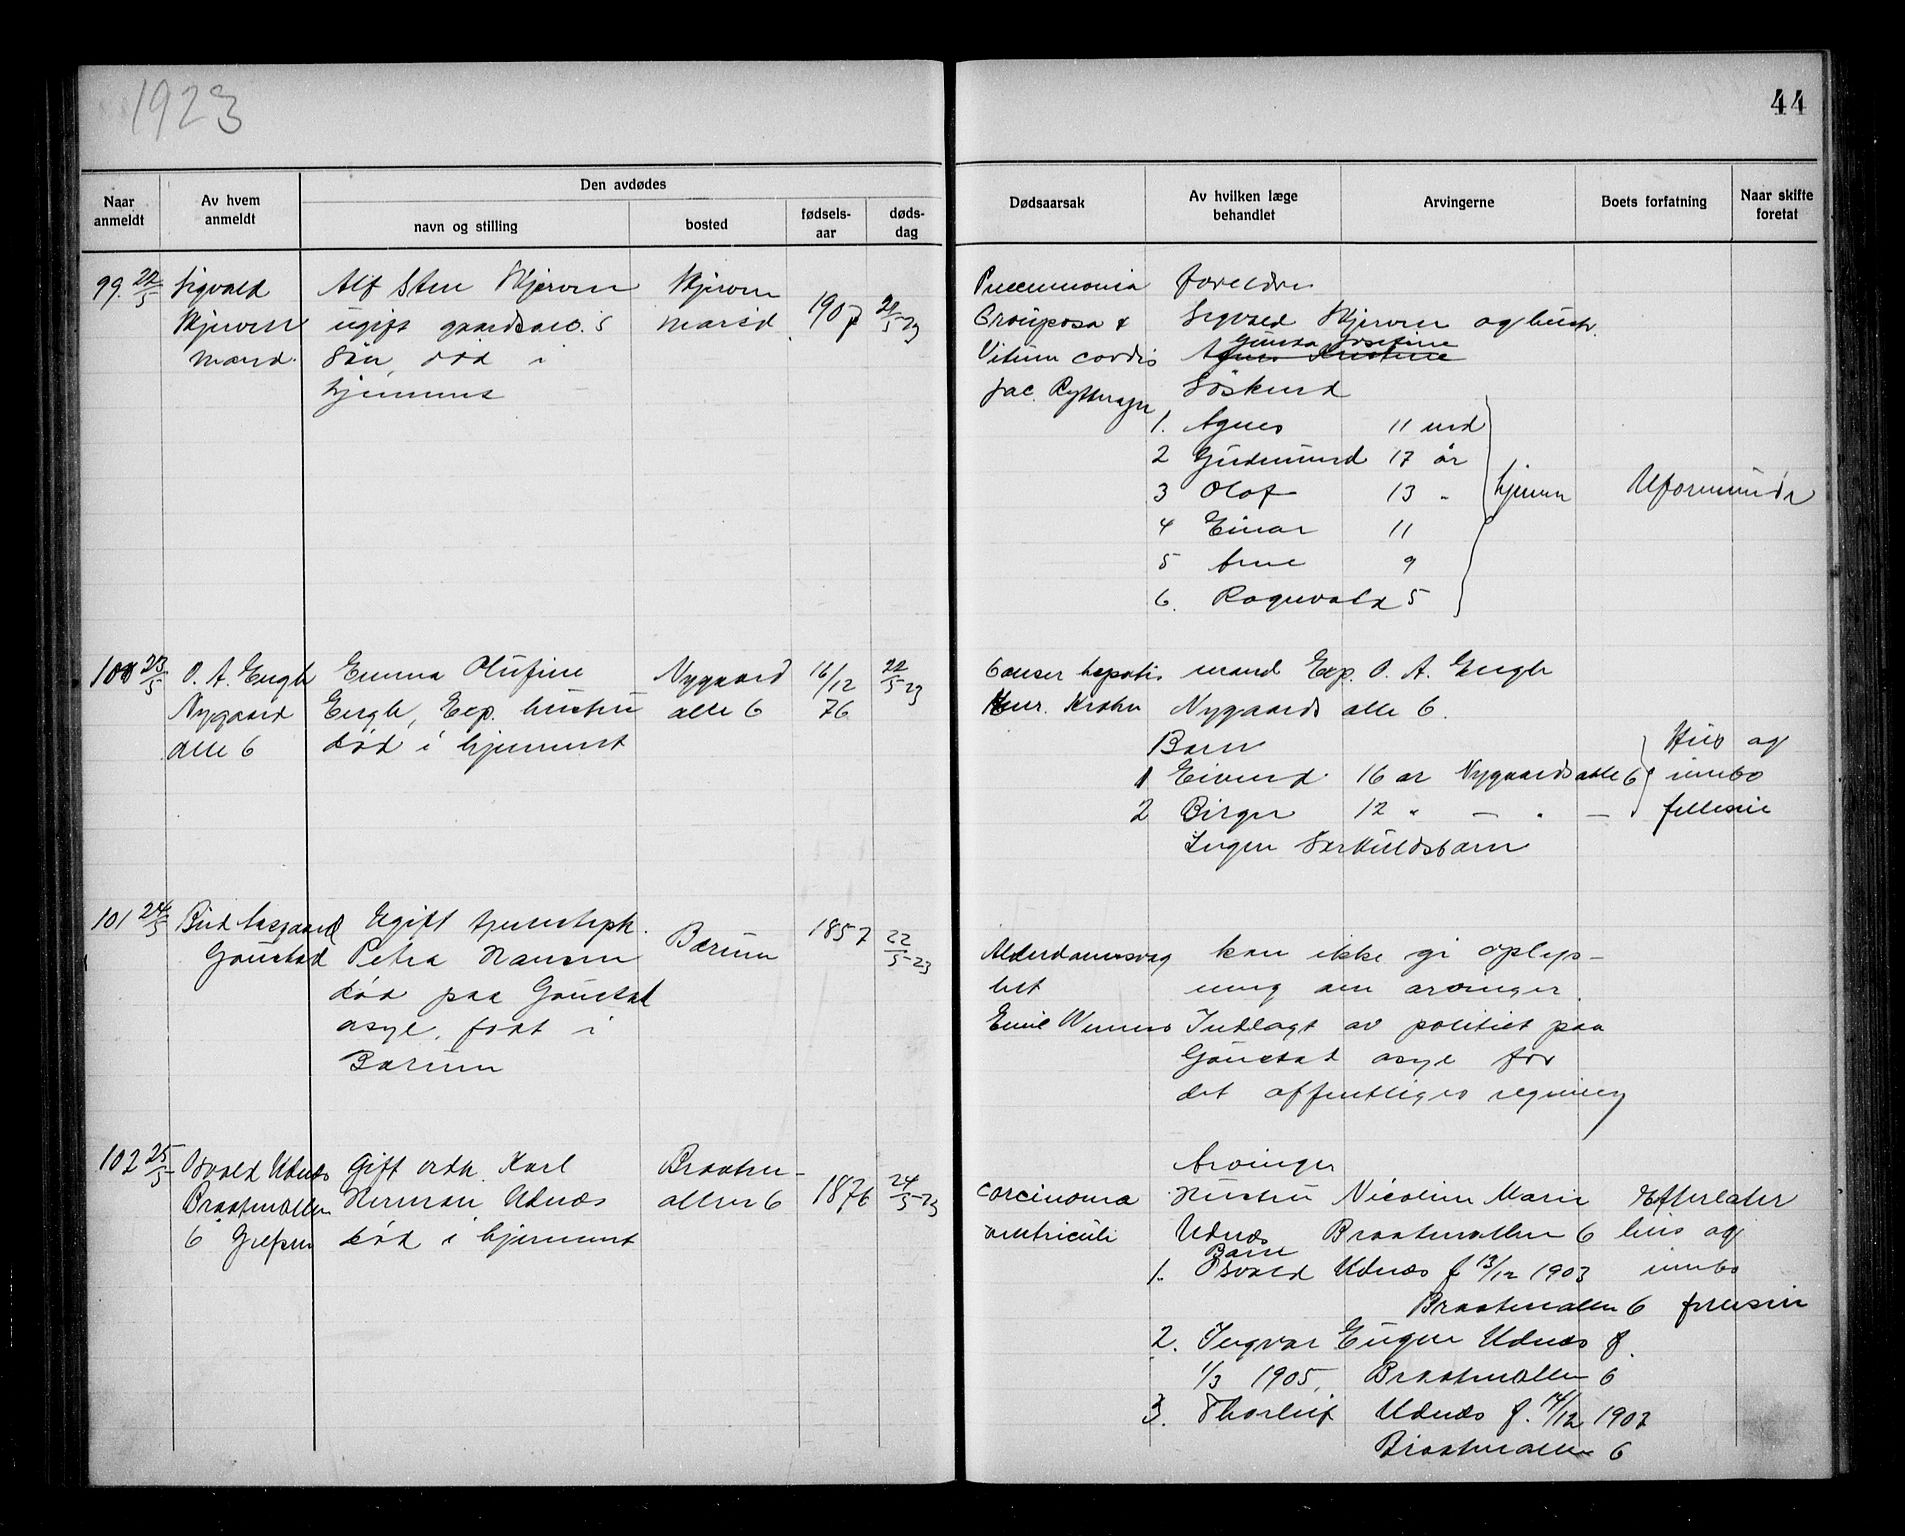 1923
44
Naar anmeldt
Av hvem anmeldt
Den avdødes
navn og stilling
bosted
fødsels-aar
døds-dag
Dødsaarsak
Av hvilken læge behandlet
Arvingerne
Boets forfatning
Naar skifte foretat
99. 22/5 Sigvald
Alf Sten Skjerven
Skjerven
1907
22/5 23
Skjerven
ugift gaardsarb. s
marid
mand.
Søn, død i
hjemmet
Pneumonia
Crouposa &
Vitium cordis
Jac.
foreldre
Sigvald Skjerven og hustr.
Gunda Josefine
Agnes Kristine
Søskend
1. Agnes 11 md
2 Gudmund 17 år
3 Olaf 13 "
hjemme
Uformuende
4 Einar 11
5 Arne 9
6. Ragnvald 5
100 23/5 O. A. Engh
Nygaard
alle 6
Emma Olufine
Engh, Exp. hustru
død i hjemmet
Nygaard
alle 6
16/12
76
22/5 23
Cancer hepatis
Kr. Krohn
mand Exp. O. A. Engh
Nygaards alle 6.
Barn
1 Eivind 16 ar Nygaards alle 6
2 Birger 12 " — " —
Ingen Særkuldsbarn
Hus og
innbo
fælleseie
101 24/5
Gaustad
Ugift tjenestepk.
Petra Hansen
død paa Gaustad
asyl, født i
Bærum
Bærum
1857
22/5-23
Alderdomssvag
het
Emil
kan ikke gi oplys-
ning om arvinger.
Indlagt av politiet paa
Gaustad asyl for
det offentliges regning
102 25/5 Osvald Udnæs
Braatenalleen
6 Grefsen
Gift Karl
Herman Udnæs
død i hjemmet
Braaten-
alleen 6
1876
24/5-23
Carcinoma
ventriculi
Arvinger
Hustru Nicoline Marie
Udnæs Braatenalleen 6
Barn
1. Osvald Udnæs f 13/12 1903
Braatenalleen 6
2. Ingvar Eugen Udnæs f.
1/3 1905, Braatenalleen 6
3. Thorleif Udnæs f. 14/12 1907
Braatenalleen 6
Efterlater
hus og
innbo
fælleseie